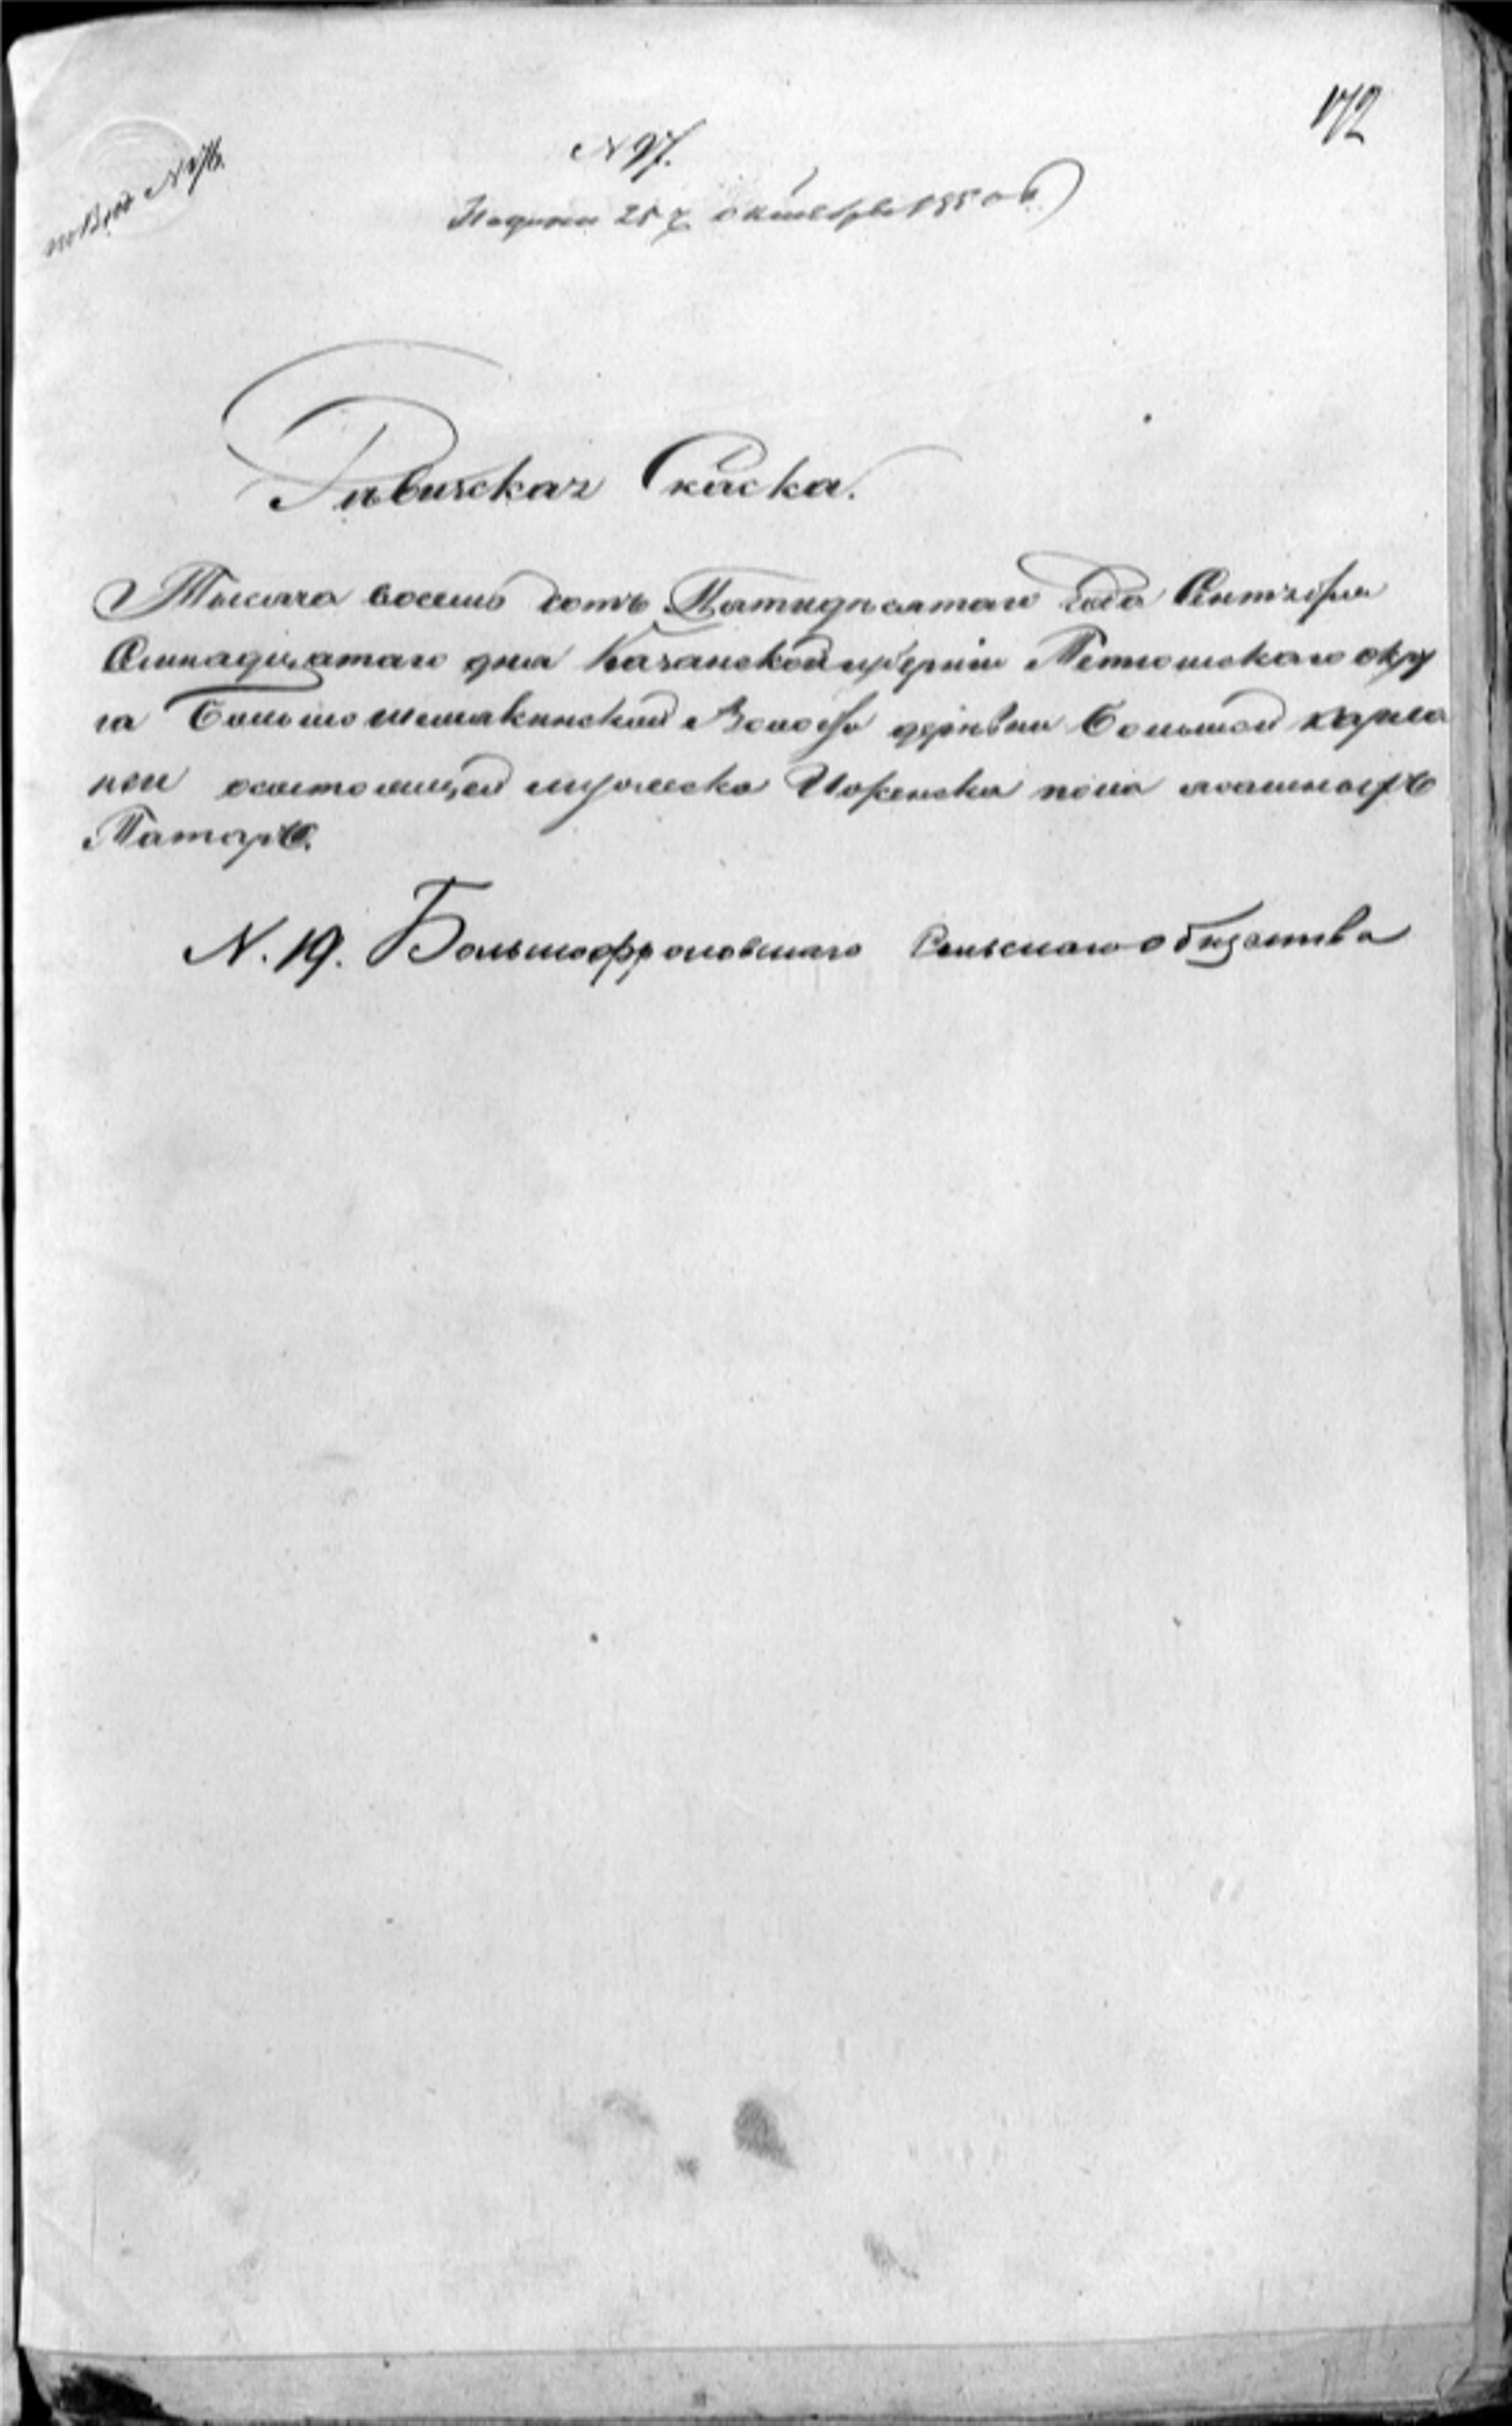 172
N 97.
Подана 25 октября 1850 г.
Ревижская Скаска.
Тысяча восемь сотъ Пятидесятаго года Сентября
Семнадцатаго дня Казанской губерніи Тетюшскаго окру
га Большешемякинской Волости деревни Большой
состоящей мужеска Иженска пола о ясашныхъ
Татарѣ.
N. 19. Большофроловскаго Сельскаго общества